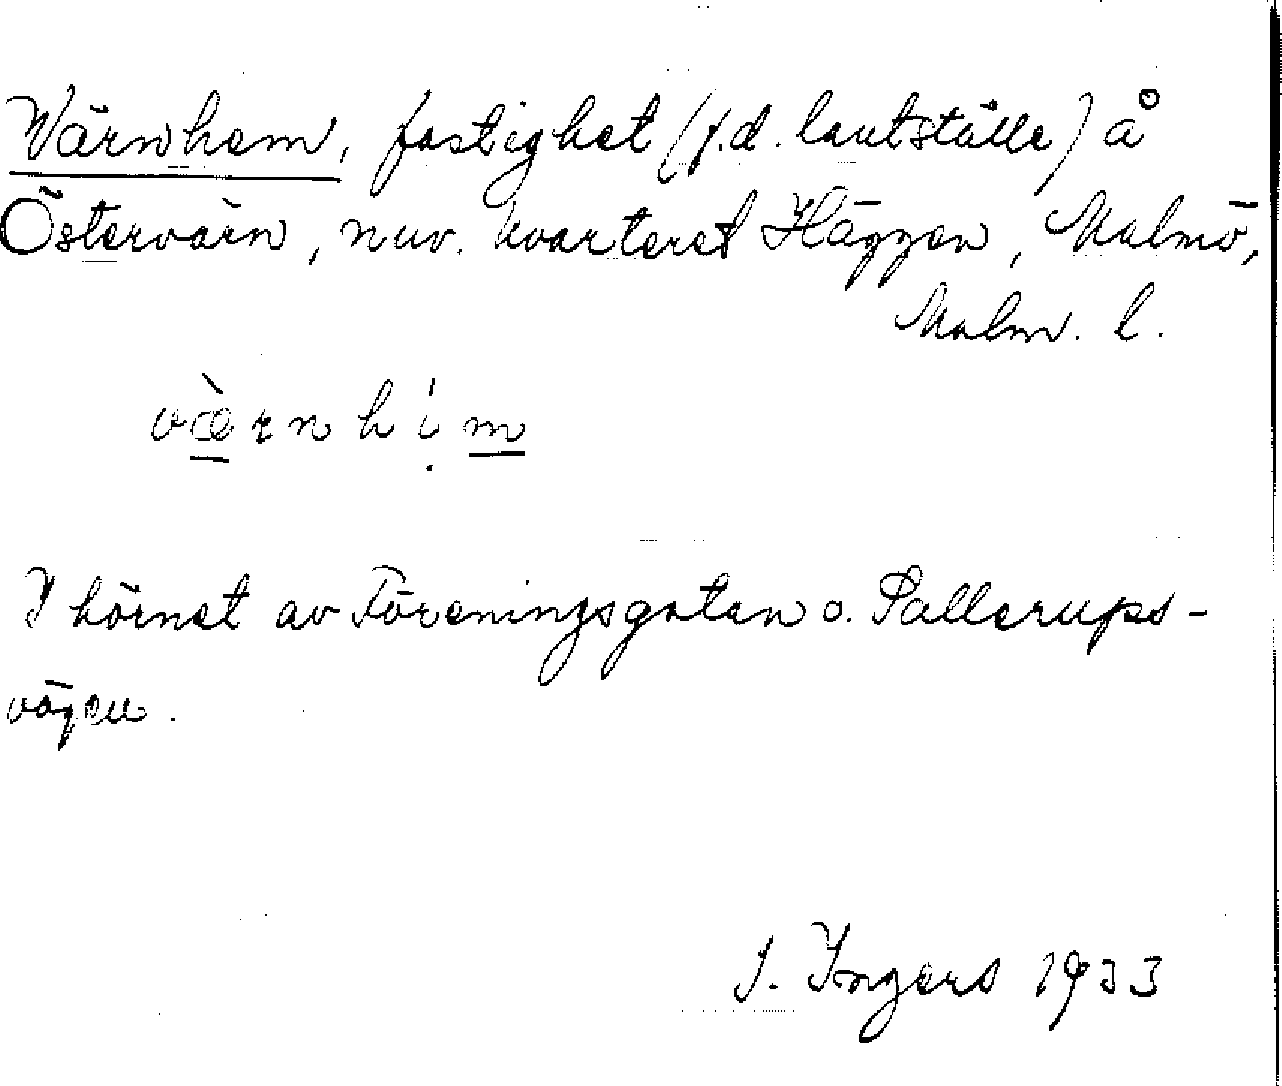 Värnhem, fastighet (f.d. lantställe) å
Östervärn, nuv. kvarteret Häggen, Malmö,
Malm. l.
væ̀rnhịm
I hörnet av Föreningsgatan o. Sallerups-
vägen.
I. Ingers 1933